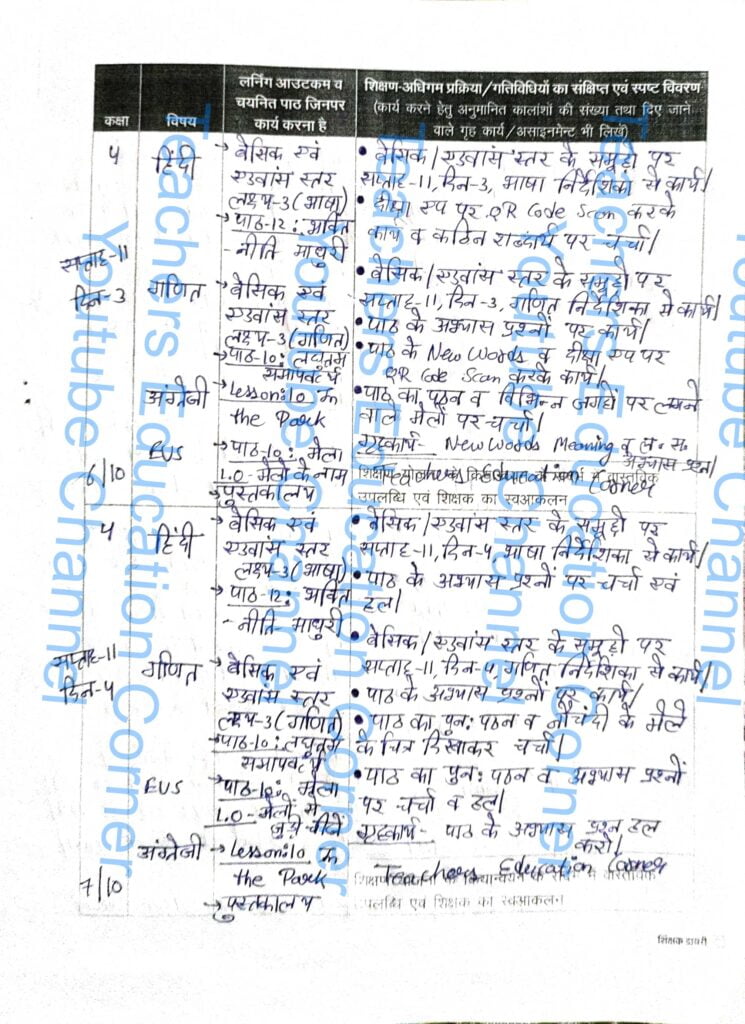 कक्षा
विषय
लर्निंग आउटकम व
चयनित पाठ जिनपर
कार्य करना है
शिक्षण-अधिगम प्रक्रिया/गतिविधियों का संक्षिप्त एवं स्पष्ट विवरण
(कार्य करने हेतु अनुमानित कालांशों की संख्या तथा दिए जाने
वाले गृह कार्य/असाइनमेंट भी लिखें)
4
सप्ताह-11
दिन-3
6/10
हिंदी
→ बेसिक एवं
एडवांस स्तर
लक्ष्य-3 (भाषा)
→ पाठ-12: भक्ति
- नीति माधुरी
• बेसिक/एडवांस स्तर के समूहों पर
सप्ताह-11, दिन-3, भाषा निर्देशिका से कार्य।
• दीक्षा एप पर QR Code Scan करके
कार्य व कठिन शब्दार्थ पर चर्चा।
गणित
→ बेसिक एवं
एडवांस स्तर
लक्ष्य-3 (गणित)
→ पाठ-10: लघुतम
समापवर्त्य
• बेसिक/एडवांस स्तर के समूहों पर
सप्ताह-11, दिन-3, गणित निर्देशिका से कार्य।
• पाठ के अभ्यास प्रश्नों पर कार्य।
अंग्रेजी
→ Lesson:10 In
the Park
• पाठ के New Words व दीक्षा एप पर
QR Code Scan करके कार्य।
EVS
→ पाठ-10: मेला
L.O-मेलों के नाम
→ पुस्तकालय
• पाठ का पठन व विभिन्न जगहों पर लगने
वाले मेलों पर चर्चा।
गृहकार्य- New Words Meaning व ल. स.
अभ्यास प्रश्न।
Teachers Education Corner
उपलब्धि एवं शिक्षक का स्वआकलन
4
सप्ताह-11
दिन-4
7/10
हिंदी
→ बेसिक एवं
एडवांस स्तर
लक्ष्य-3 (भाषा)
→ पाठ-12: भक्ति
- नीति माधुरी
• बेसिक/एडवांस स्तर के समूहों पर
सप्ताह-11, दिन-4, भाषा निर्देशिका से कार्य।
• पाठ के अभ्यास प्रश्नों पर चर्चा एवं
हल।
गणित
→ बेसिक एवं
एडवांस स्तर
लक्ष्य-3 (गणित)
→ पाठ-10: लघुतम
समापवर्त्य
• बेसिक/एडवांस स्तर के समूहों पर
सप्ताह-11, दिन-4, गणित निर्देशिका से कार्य।
• पाठ के अभ्यास प्रश्नों पर कार्य।
EVS
→ पाठ-10: मेला
L.O-मेलों में
• पाठ का पुन: पठन व नौचंदी के मेले
के चित्र दिखाकर चर्चा।
अंग्रेजी
→ Lesson:10 In
the Park
→ पुस्तकालय
• पाठ का पुन: पठन व अभ्यास प्रश्नों
पर चर्चा व हल।
गृहकार्य- पाठ के अभ्यास प्रश्न हल
करो।
Teachers Education Corner
उपलब्धि एवं शिक्षक का स्वआकलन
शिक्षक डायरी
Teachers Education Corner
Youtube Channel
Teachers Education Corner
Youtube Channel
Teachers Education Corner
Youtube Channel